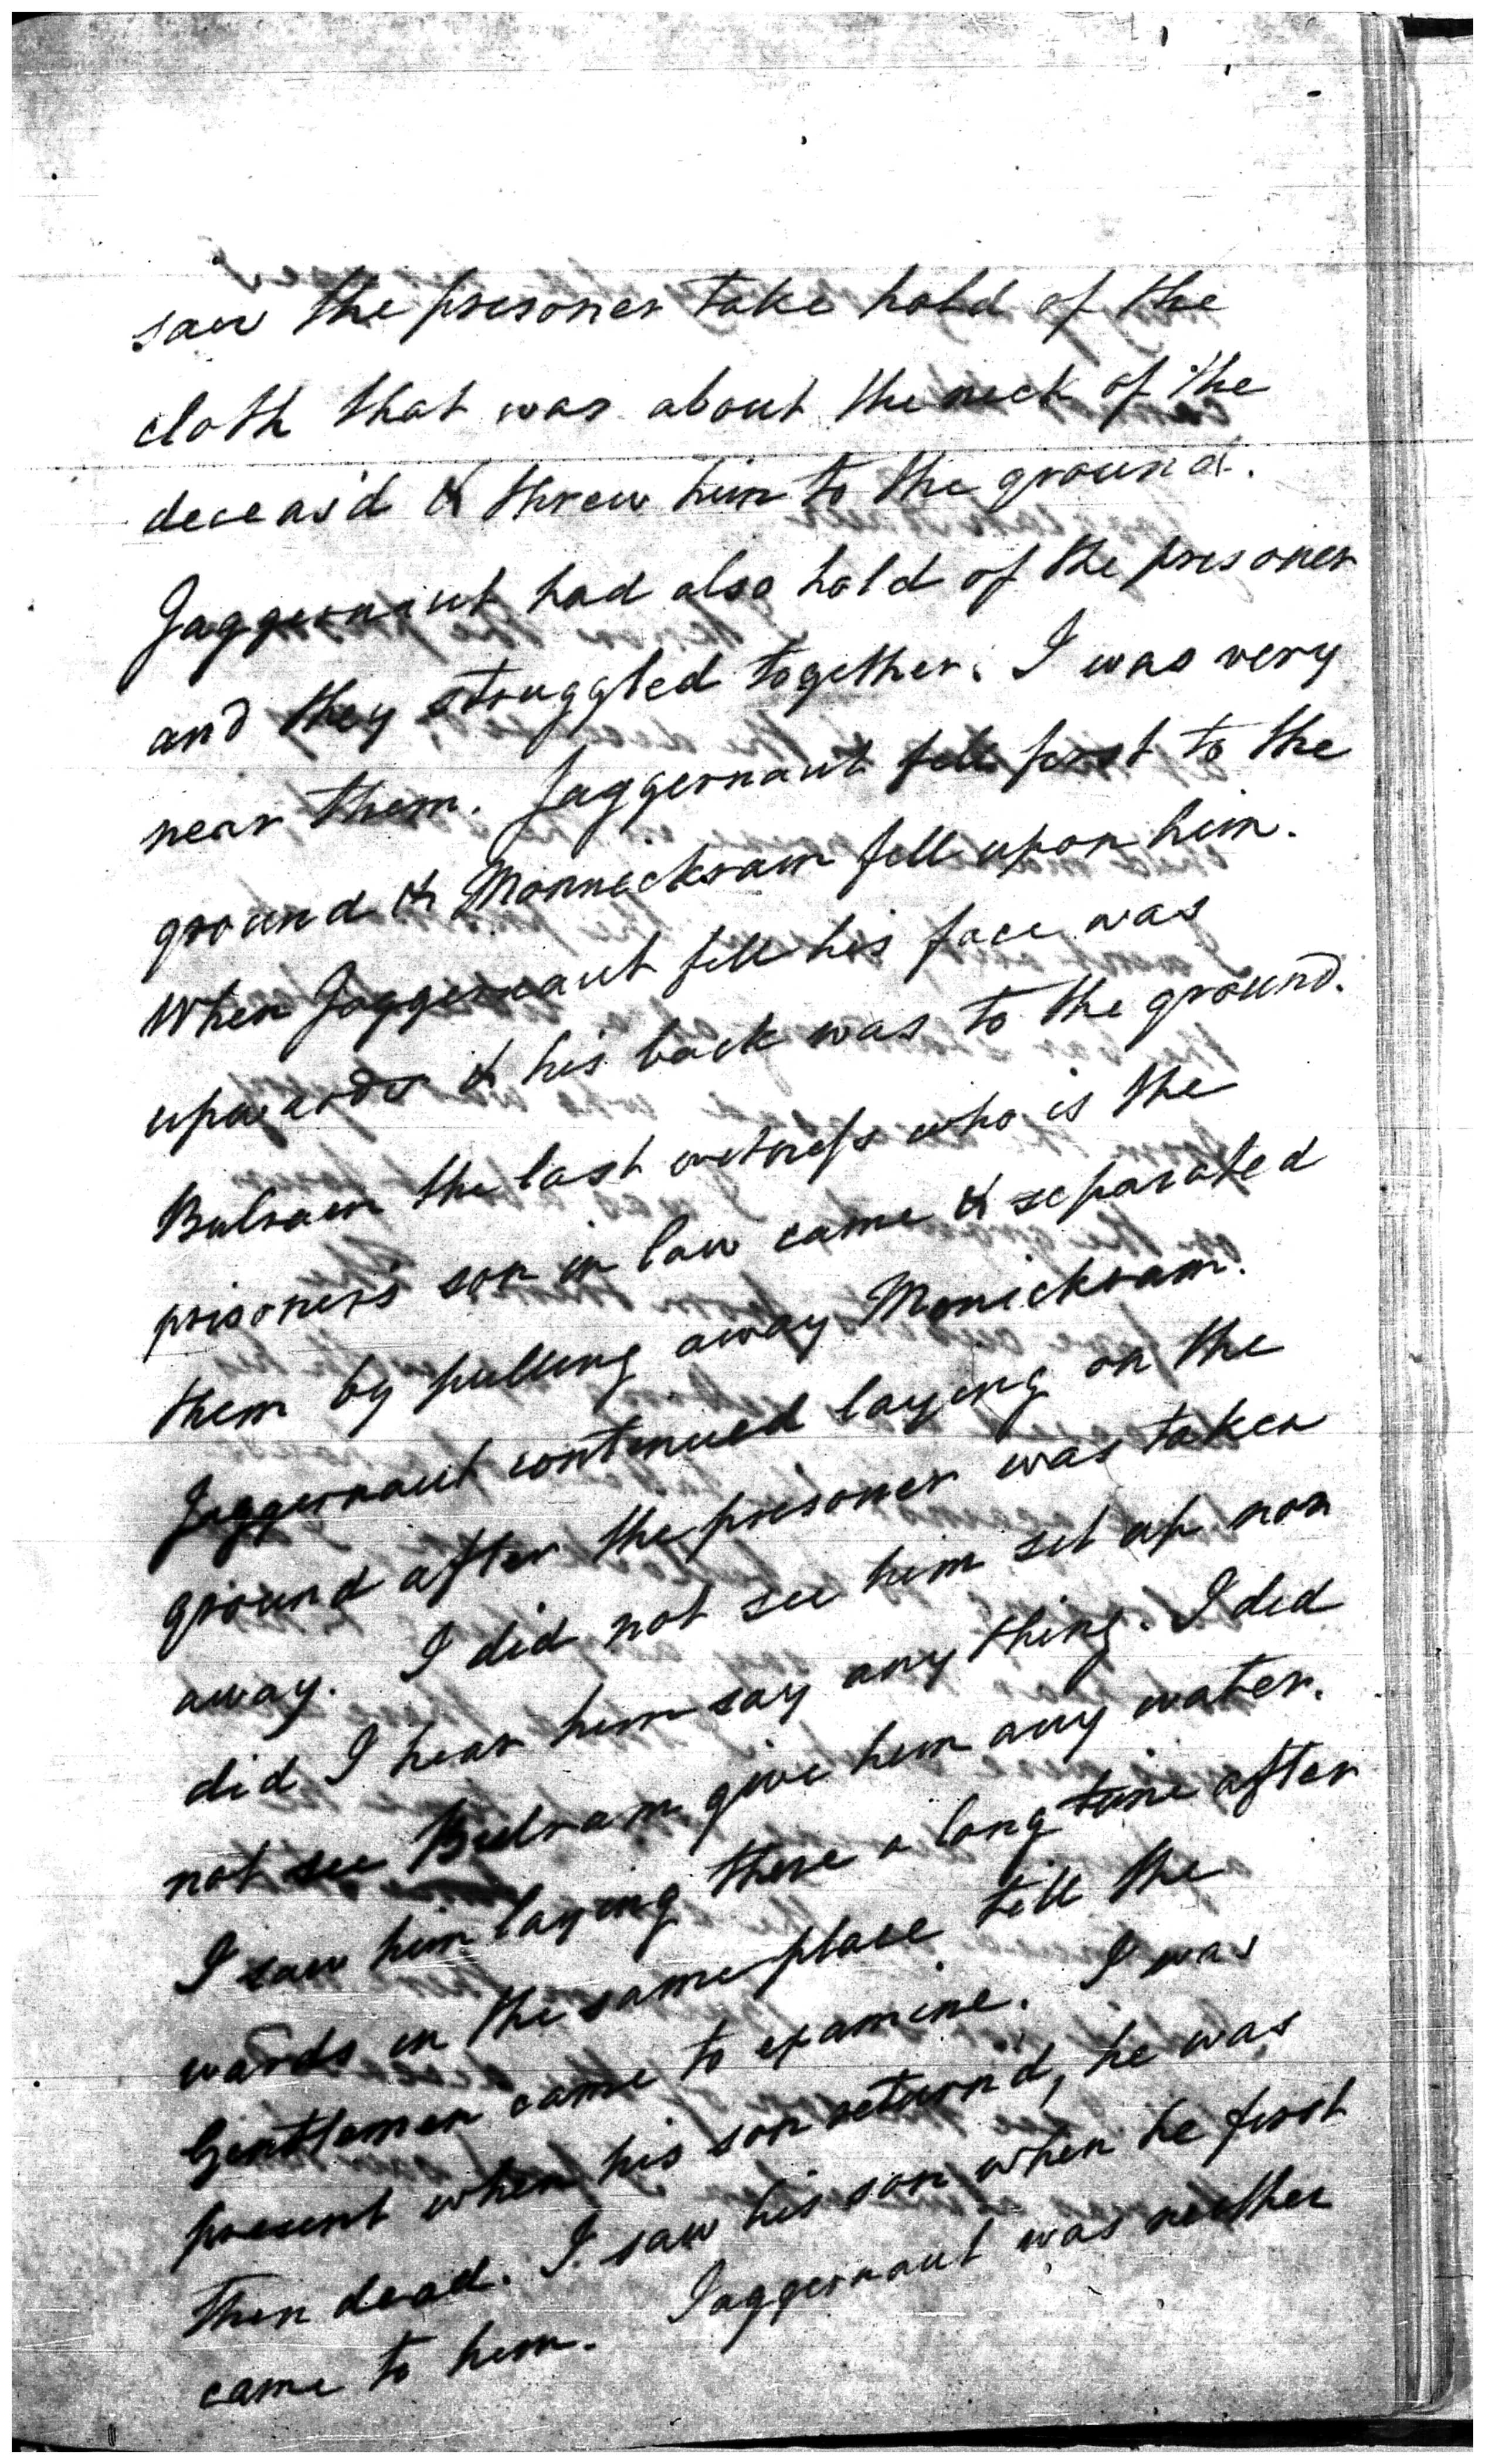 saw the prisoner take hold of the
cloth that was about the neck of the
deceas'd & threw him to the ground.
Jaggernaut had also hold of the prisoner
and they struggled together. I was very
near them. Jaggernaut fell first to the
ground & Monnickram fell upon him.
When Jaggernaut fell his face was
upwards & his back was to the ground.
Bulram the last witness who is the
prisoner's son in law came & separated
them by pulling away Monickram.
Jaggernaut continued laying on the
ground after the prisoner was taken
away. I did not see him set up nor
did I hear him say any thing. I did
not see Bulram give him any water.
I saw him laying there a long time after
wards in the same place till the
Gentlemen came to examine. I was
present when his son return'd, he was
then dead. I saw his son when he first
came to him. Jaggernaut was neither